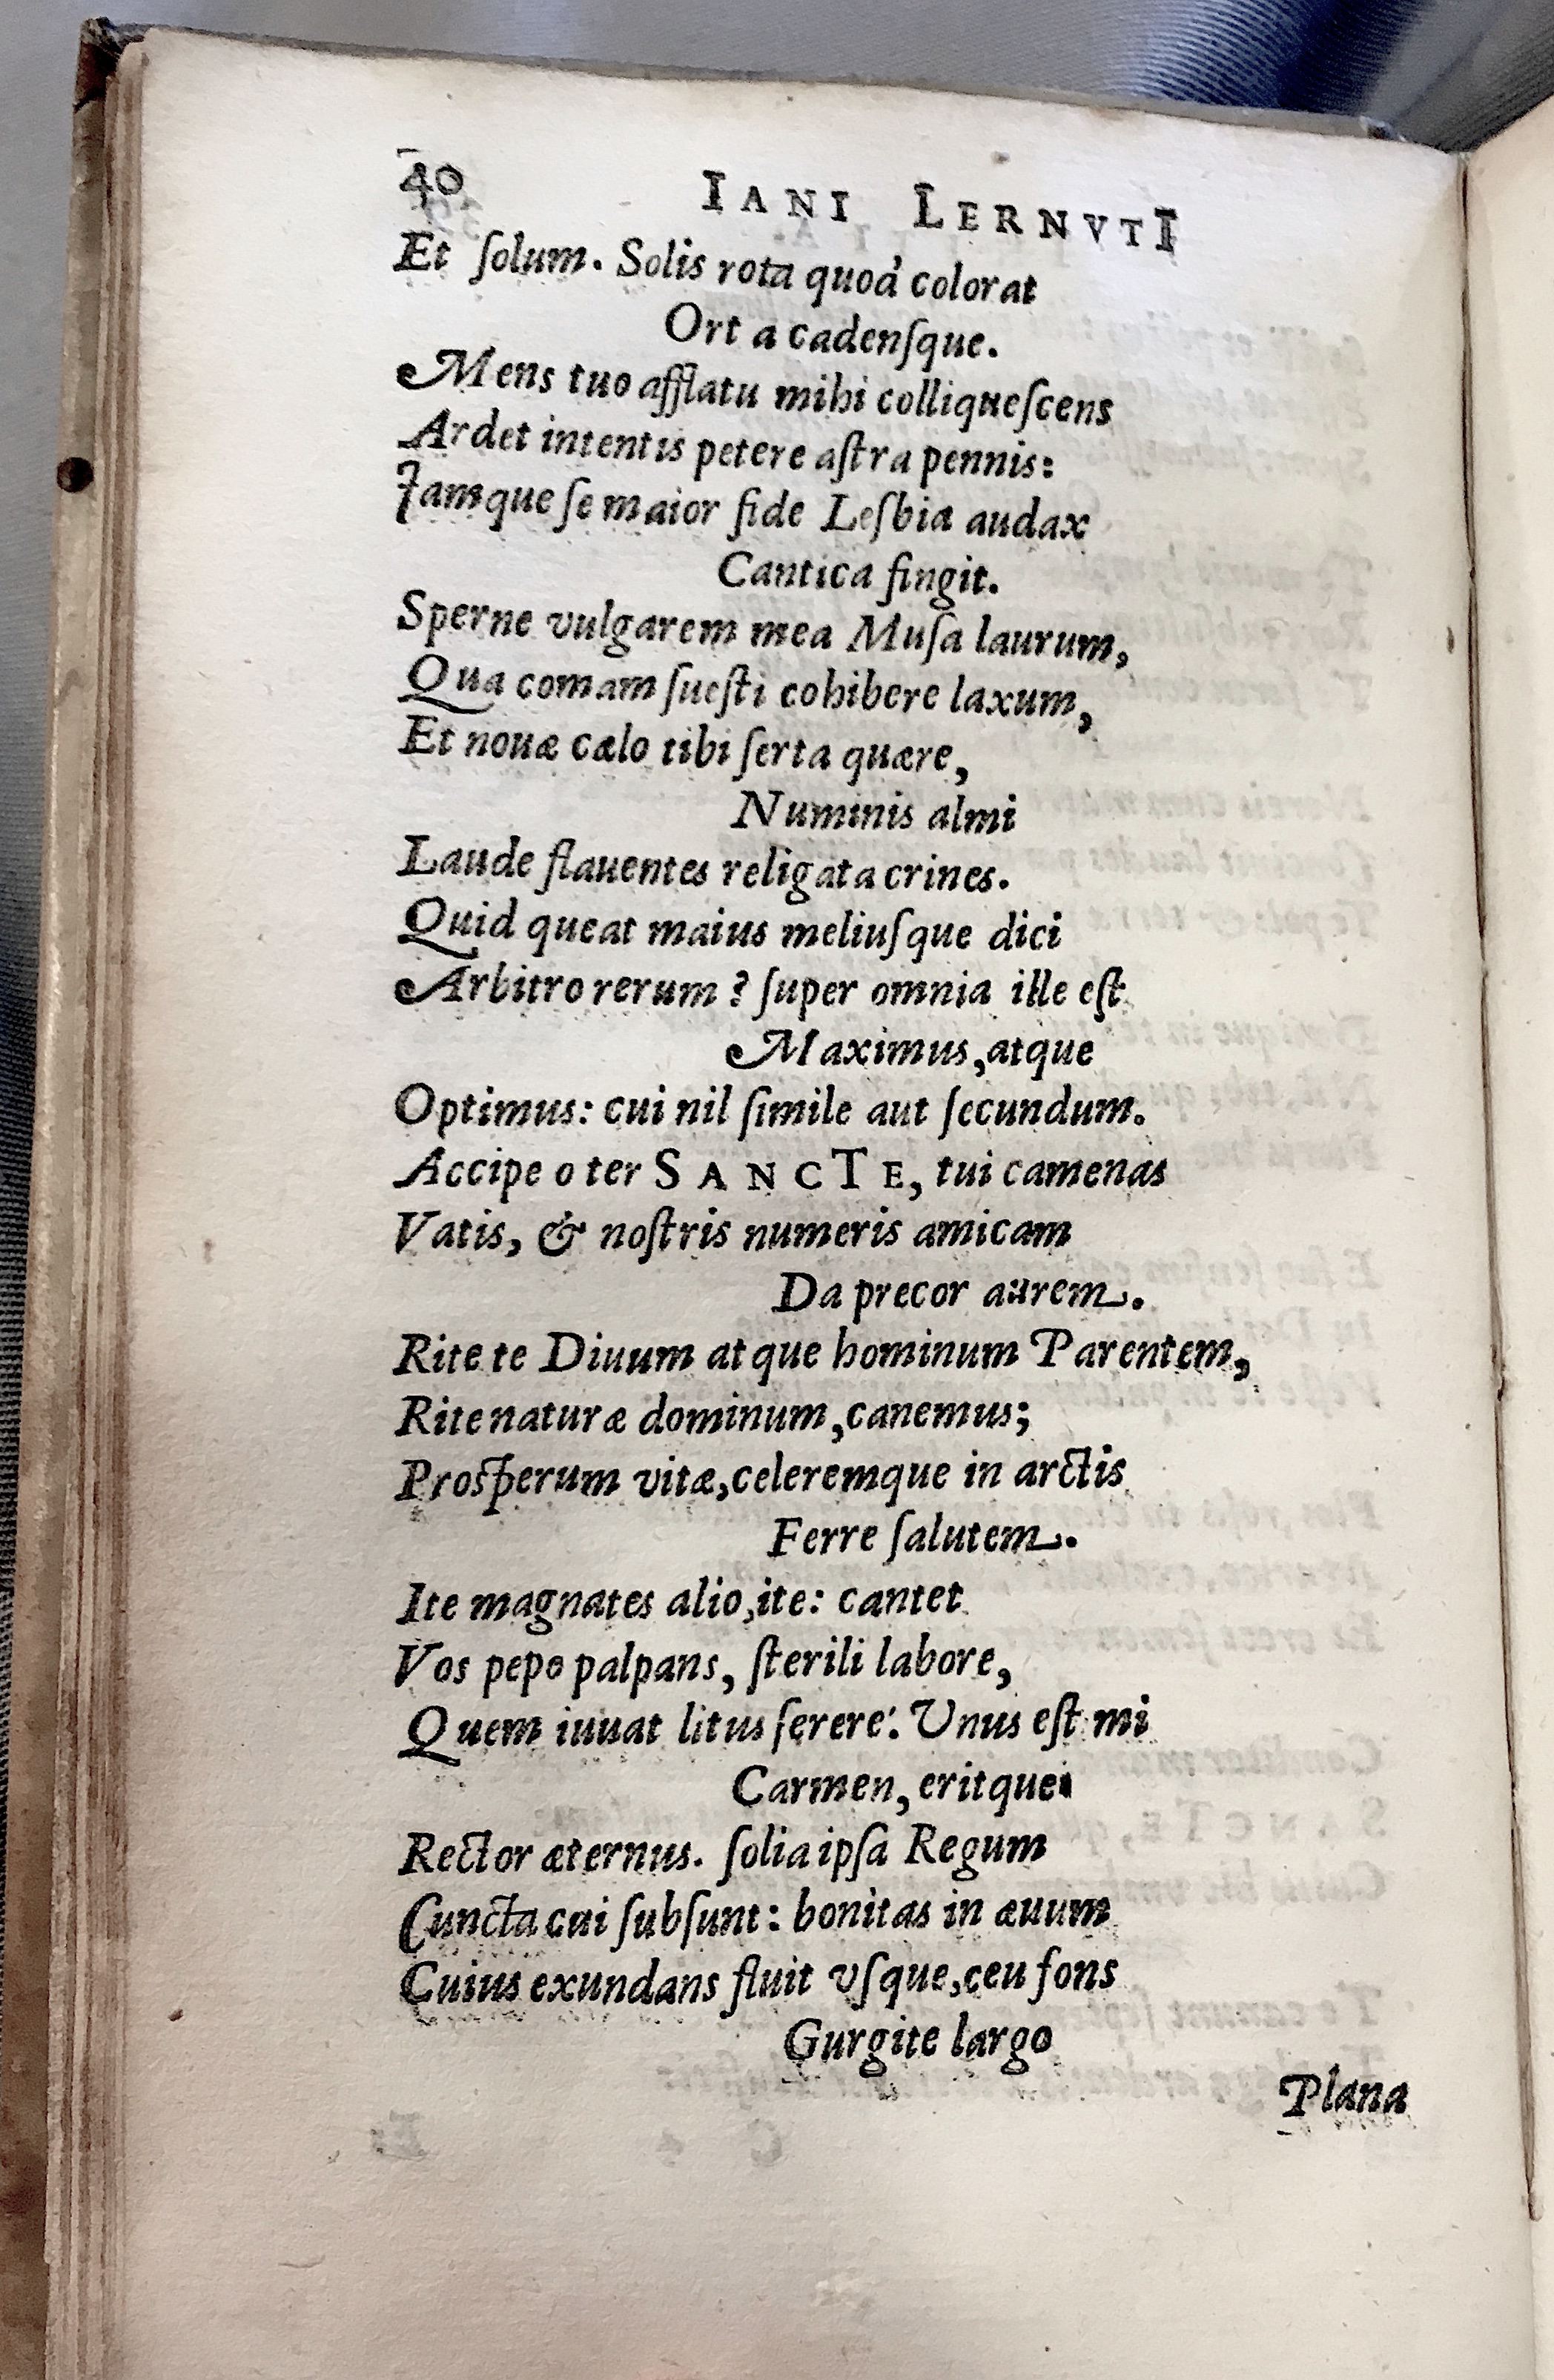 40 IANI LERNVTI
Et ſolum. Solis rota quod colorat
Orta cadenſque.
Mens tuo afflatu mihi colliqueſcens
Ardet intentis petere aſtra pennis:
Iamque ſe maior fide Leſbia audax
Cantica fingit.
Sperne vulgarem mea Muſa laurum,
Qua comam ſueſti cohibere laxum,
Et nouæ cælo tibi ſerta quære,
Numinis almi
Laude flauentes religata crines.
Quid queat maius meliuſque dici
Arbitro rerum? ſuper omnia ille eſt
Maximus, atque
Optimus: cui nil ſimile aut ſecundum.
Accipe o ter SANCTE, tui camenas
Vatis, & noſtris numeris amicam
Da precor aurem.
Rite te Diuum atque hominum Parentem,
Rite naturæ dominum, canemus;
Proſperum vitæ, celeremque in arctis
Ferre ſalutem.
Ite magnates alio, ite: cantet
Vos pepo palpans, ſterili labore,
Quem iuuat litus ſerere: Unus eſt mi
Carmen, eritque
Rector æternus. ſolia ipſa Regum
Cuncta cui ſubſunt: bonitas in æuum
Cuius exundans fluit vſque, ceu fons
Gurgite largo
Plana